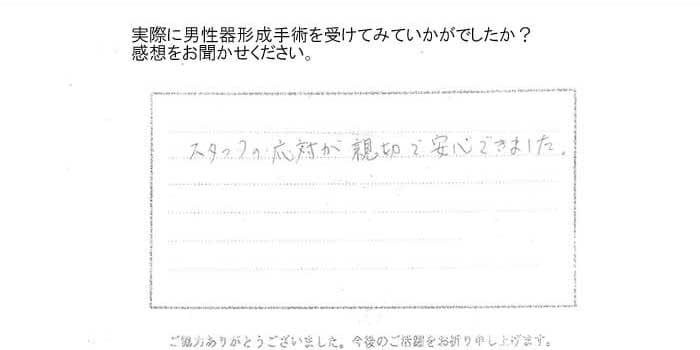 実際に男性器形成手術を受けてみていかがでしたか？
感想をお聞かせください。
スタッフの応対が親切で安心できました。
ご協力ありがとうございました。今後のご活躍をお祈り申し上げます。